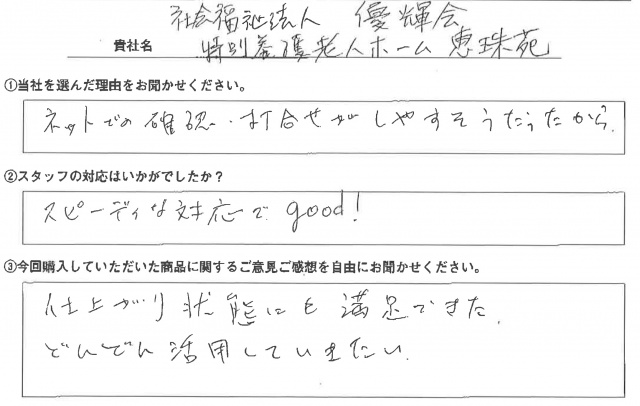 社会福祉法人 優輝会
貴社名 特別養護老人ホーム 恵珠苑
①当社を選んだ理由をお聞かせください。
ネットでの確認・打合せがしやすそうだったから.
②スタッフの対応はいかがでしたか？
スピーディな対応で good!
③今回購入していただいた商品に関するご意見ご感想を自由にお聞かせください。
仕上がり状態にも満足できた.
どんどん活用していきたい.